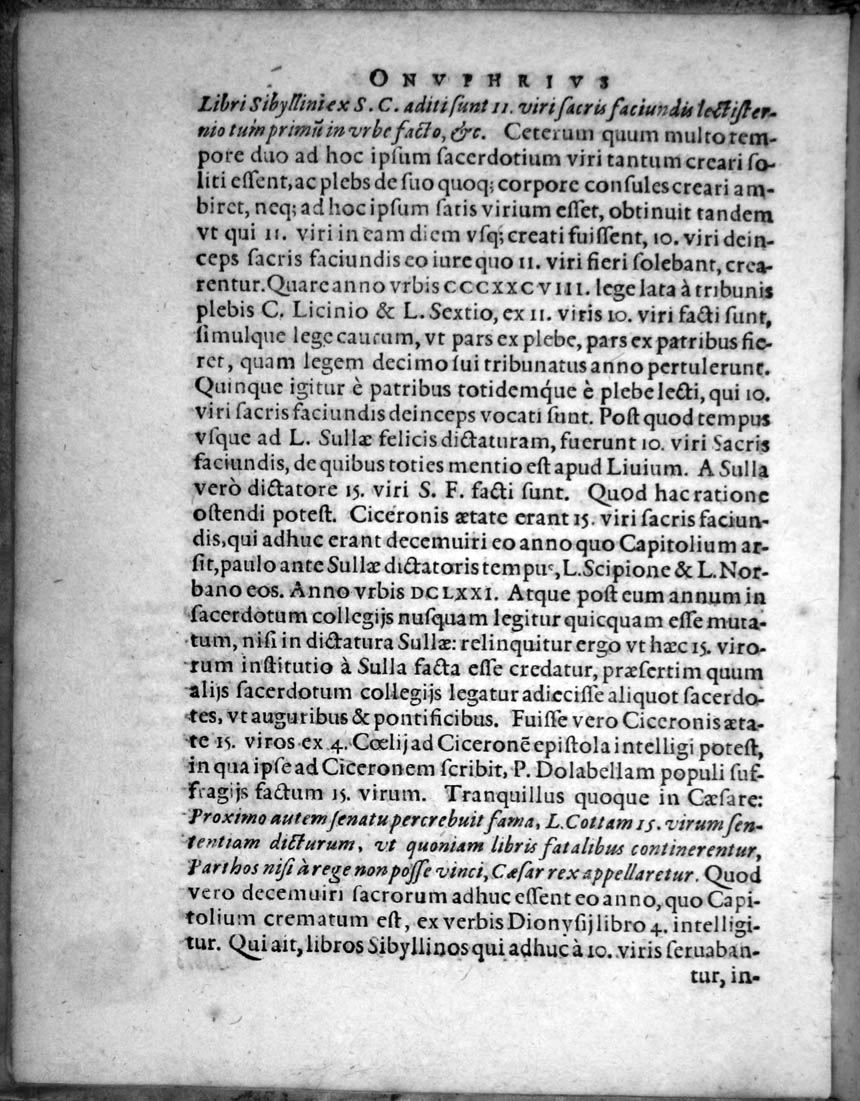 ONVPHRIVS
Libri Sibyllini ex S. C. aditi sunt 11. viri sacris faciundis lectister-
nio tum primũ in vrbe facto, &c. Ceterum quum multo tem-
pore duo ad hoc ipſum ſacerdotium viri tantum creari ſo-
liti eſſent, ac plebs de ſuo quoq; corpore conſules creari am-
biret, neq; ad hoc ipſum ſatis virium eſſet, obtinuit tandem
vt qui 11. viri in eam diem vſq; creati fuiſſent, 10. viri dein-
ceps ſacris faciundis eo iure quo 11. viri fieri ſolebant, crea-
rentur. Quare anno vrbis CCCXXCVIII. lege lata à tribunis
plebis C. Licinio & L. Sextio, ex 11. viris 10. viri facti ſunt,
ſimulque lege cautum, vt pars ex plebe, pars ex patribus fie-
ret, quam legem decimo ſui tribunatus anno pertulerunt.
Quinque igitur è patribus totidemq́ue è plebe lecti, qui 10.
viri ſacris faciundis deinceps vocati ſunt. Poſt quod tempus
vſque ad L. Sullæ felicis dictaturam, fuerunt 10. viri Sacris
faciundis, de quibus toties mentio eſt apud Liuium. A Sulla
verò dictatore 15. viri S. F. facti ſunt. Quod hac ratione
oſtendi poteſt. Ciceronis ætate erant 15. viri ſacris faciun-
dis, qui adhuc erant decemuiri eo anno quo Capitolium ar-
ſit, paulo ante Sullæ dictatoris tempus, L. Scipione & L. Nor-
bano cos. Anno vrbis DCLXXI. Atque poſt eum annum in
ſacerdotum collegijs nuſquam legitur quicquam eſſe muta-
tum, niſi in dictatura Sullæ: relinquitur ergo vt hæc 15. viro-
rum inſtitutio à Sulla facta eſſe credatur, præſertim quum
alijs ſacerdotum collegijs legatur adieciſſe aliquot ſacerdo-
tes, vt auguribus & pontificibus. Fuiſſe vero Ciceronis æta-
te 15. viros ex 4. Cœlij ad Ciceronẽ epiſtola intelligi poteſt,
in qua ipſe ad Ciceronem ſcribit, P. Dolabellam populi ſuf-
fragijs factum 15. virum. Tranquillus quoque in Cæſare:
Proximo autem ſenatu percrebuit fama, L. Cottam 15. virum ſen-
tentiam dicturum, vt quoniam libris fatalibus contineretur,
Parthos niſi à rege non poſſe vinci, Cæſar rex appellaretur. Quod
vero decemuiri ſacrorum adhuc eſſent eo anno, quo Capi-
tolium crematum eſt, ex verbis Dionyſij libro 4. intelligi-
tur. Qui ait, libros Sibyllinos qui adhuc à 10. viris ſeruaban-
tur, in-